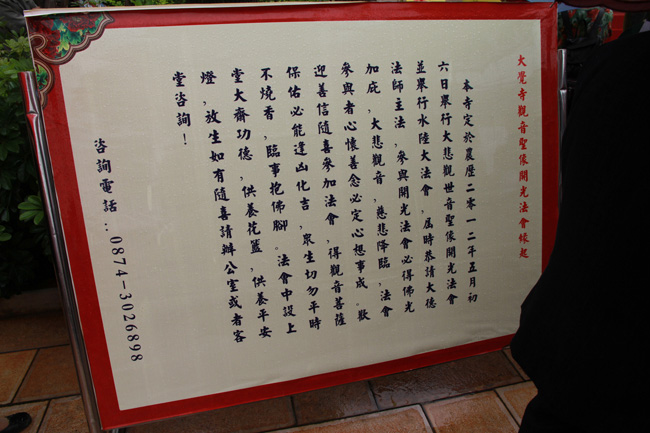 大覺寺觀音聖像開光法會緣起
本寺定於農歷二零一二年五月初
六日舉行大悲觀世音聖像開光法會
並舉行水陸大法會，屆時恭請大德
法師主法，參與開光法會必得佛光
加庇，大悲觀音，慈悲降臨，法會
參與者心懷善念必定心想事成。歡
迎善信隨喜參加法會，得觀音菩薩
保佑必能逢凶化吉，眾生切勿平時
不燒香，臨事抱佛腳。法會中設上
堂大齋功德，供養花籃，供養平安
燈，放生如有隨喜請辦公室或者客
堂咨詢！
咨詢電話：0874-3026898